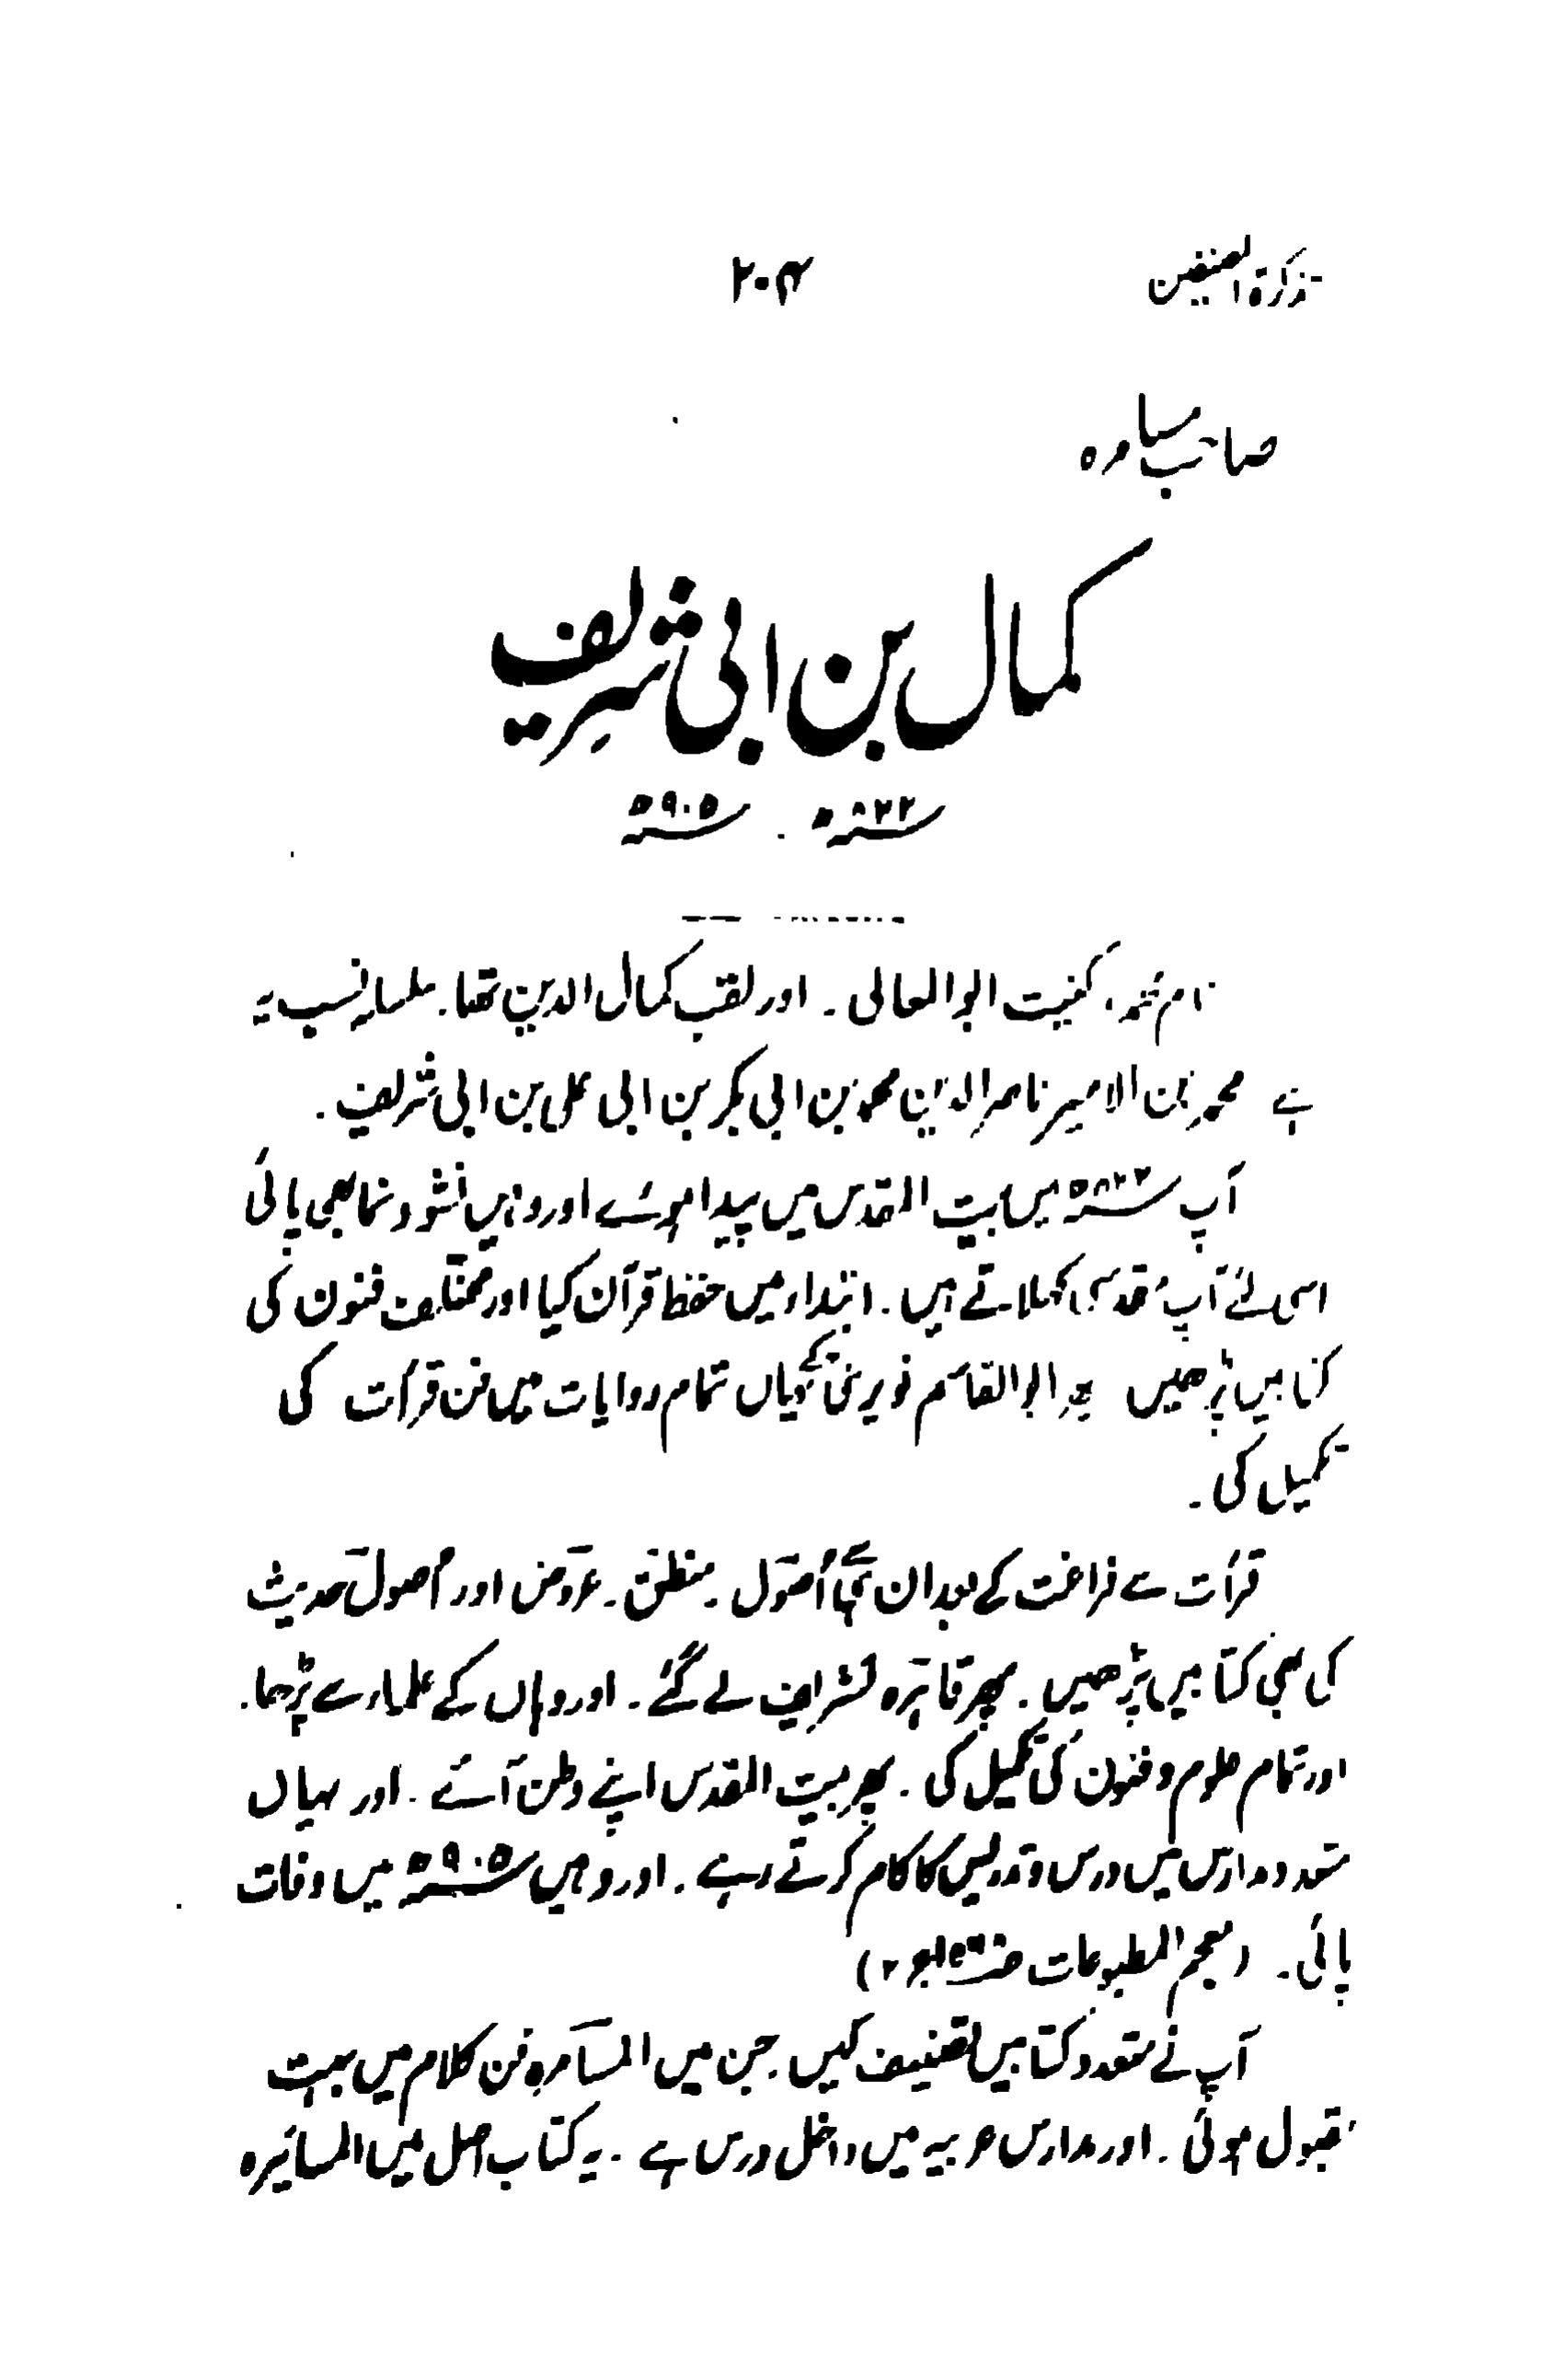 تذکرۃ المصنفین
۲۰۴
صاحب مسامرہ
کمال بن ابی شریف
۸۲۲ھ . ۹۰۵ھ
نام محمد، کنیت ابوالمعالی ۔ اور لقب کمال الدین تھا. سلسلۂ نسب یہ
ہے محمد بن الامیر ناصر الدین محمد بن ابی بکر بن ابی علی بن ابی شریف .
آپ ۸۲۲ھ میں بیت المقدس میں پیدا ہوئے اور وہیں نشو و نما بھی پائی
اسی لئے آپ مقدسی کہلاتے ہیں . ابتداء میں حفظ قرآن کیا اور مختلف فنون کی
کتابیں پڑھیں پھر ابوالقاسم نویری کے یہاں تمام روایات میں فن قرأت کی
تکمیل کی ۔
قرأت سے فراغت کے بعد ان ہی کے اُصول ۔ منطق ۔ عروض اور اُصول حدیث
کی بھی کتابیں پڑھیں . پھر قاہرہ تشریف لے گئے ۔ اور وہاں کے علماء سے پڑھا .
اور تمام علوم و فنون کی تکمیل کی . پھر بیت المقدس اپنے وطن آئے . اور یہاں
متعدد مدارس میں درس و تدریس کا کام کرتے رہے . اور وہیں ۹۰۵ھ میں وفات
پائی ۔ (معجم المطبوعات ج ۲)
آپ نے متعدد کتابیں تصنیف کیں . جن میں المسامرہ فن کلام میں بہت
مقبول ہوئی . اور مدارس عربیہ میں داخل درس ہے . یہ کتاب اصل میں المسائرہ